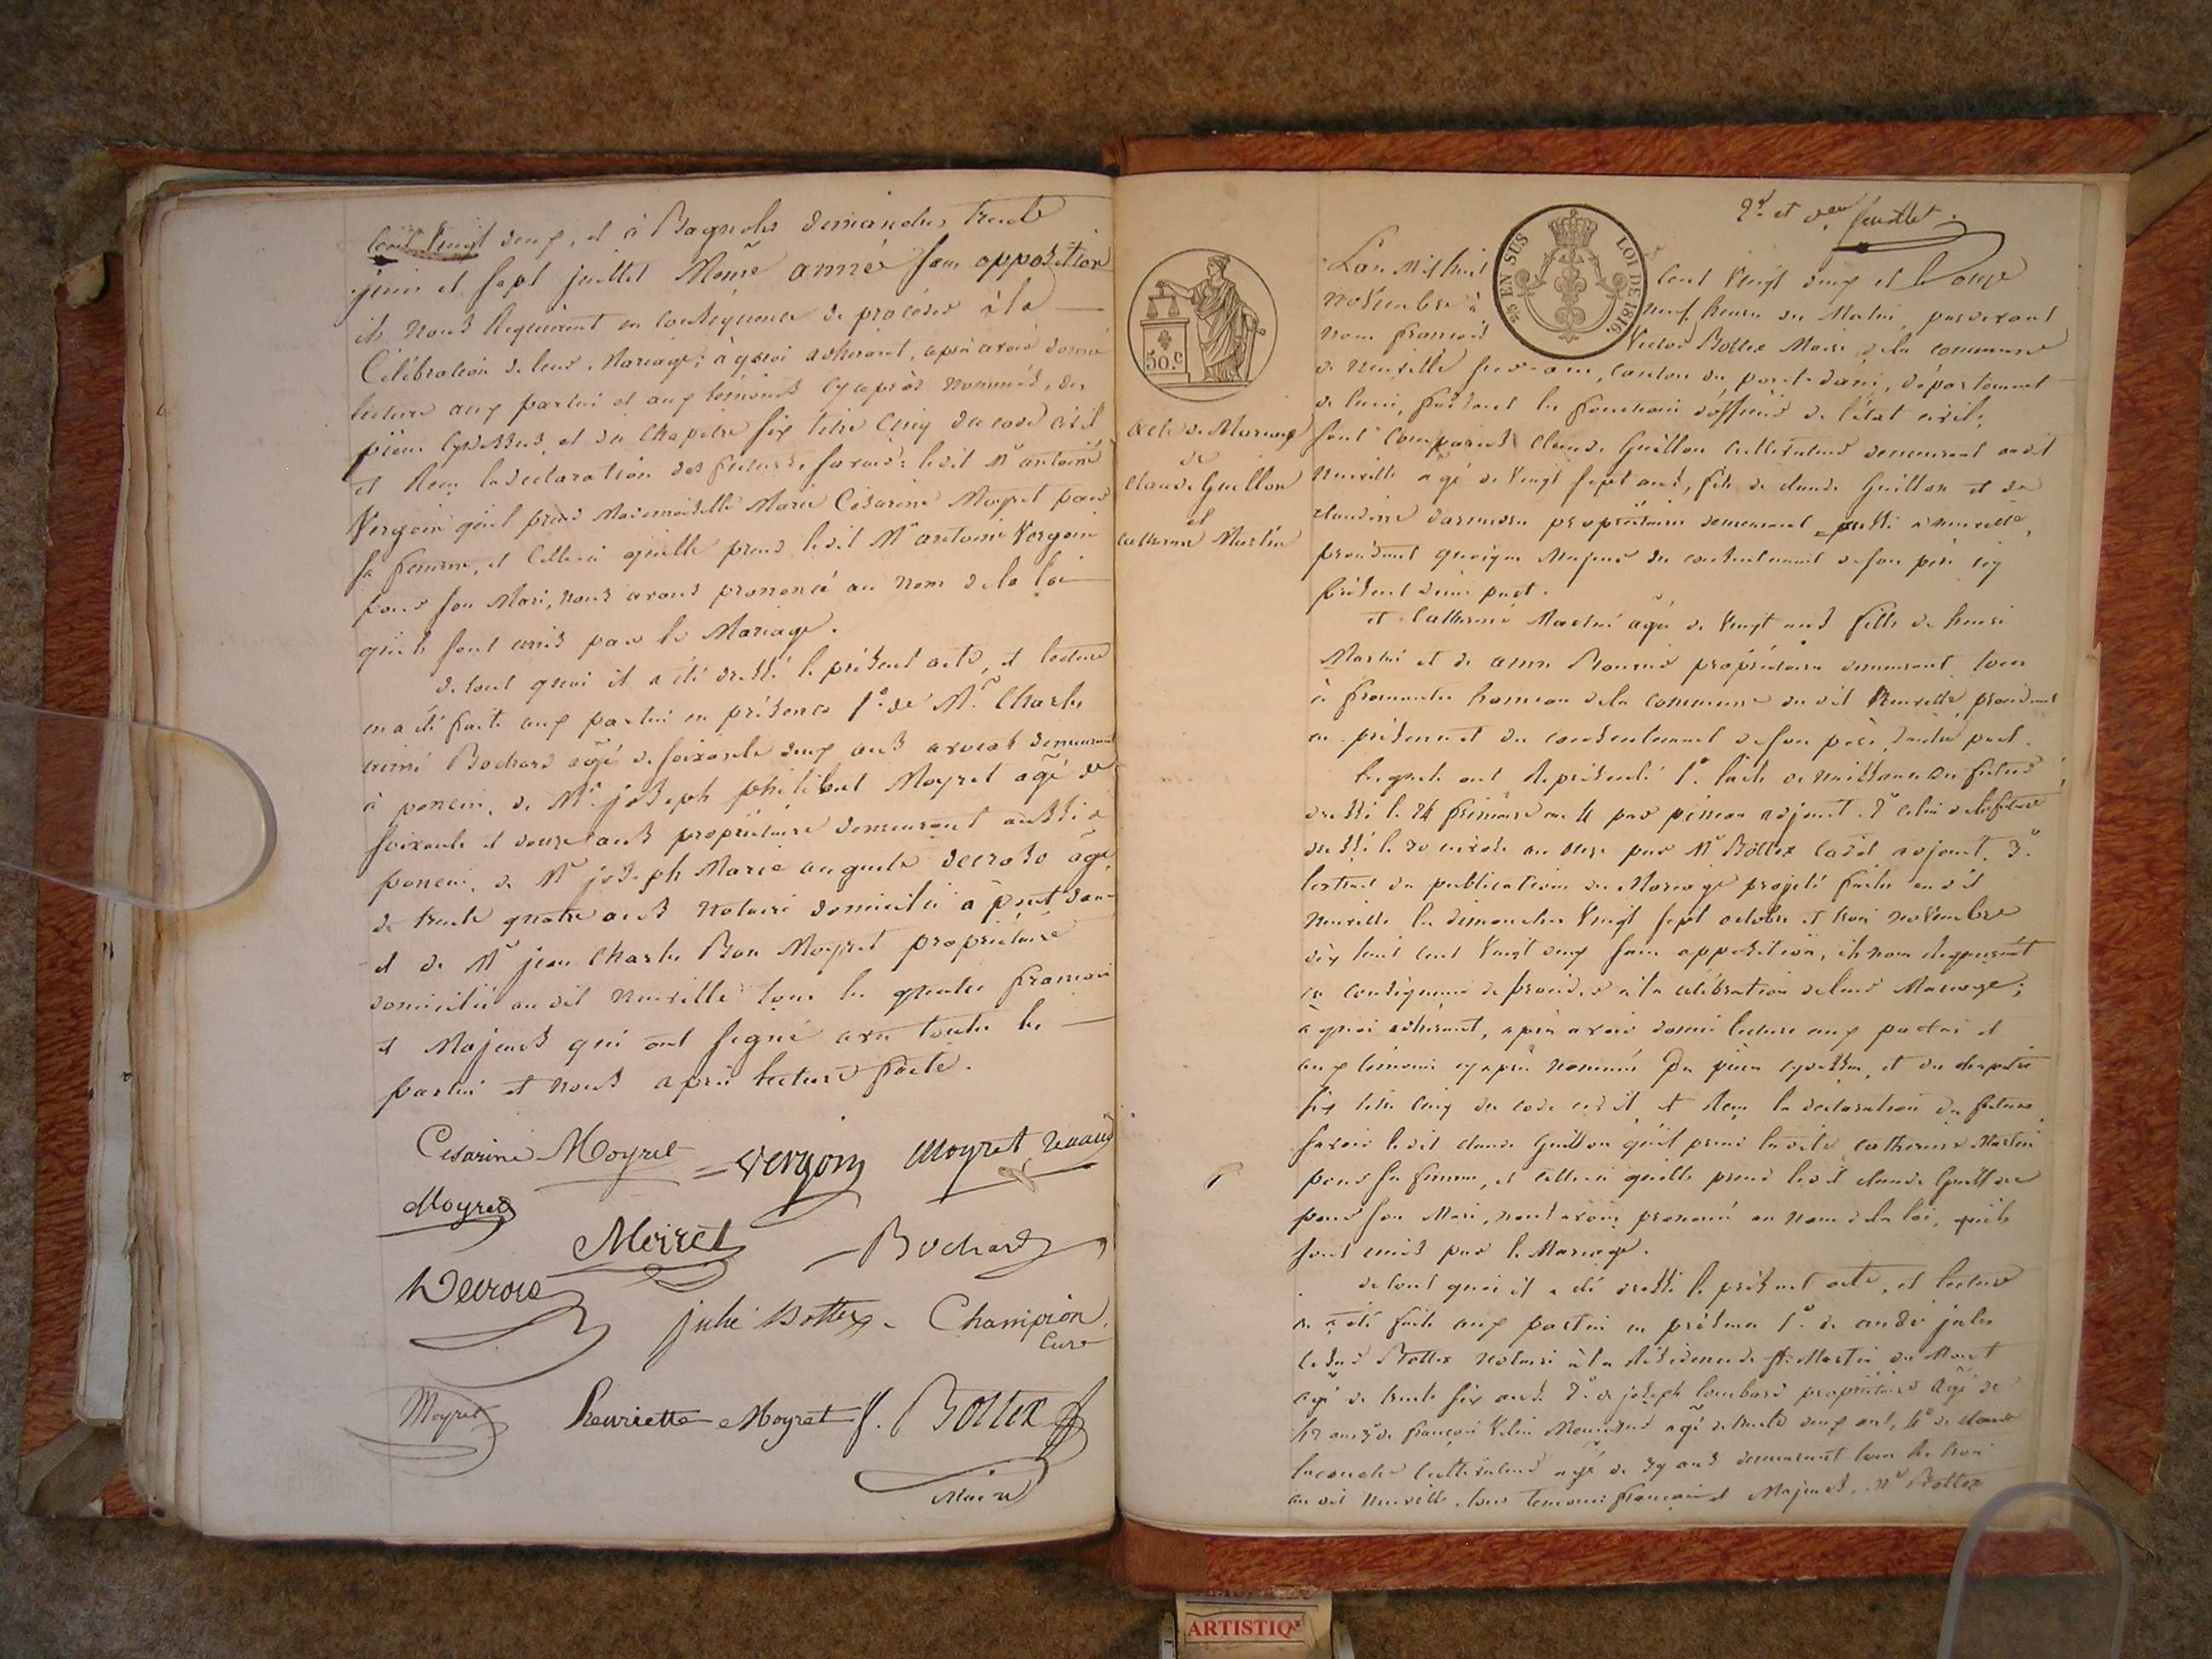 cent vingt deux, et à Bagnoles dimanches trente
juin et sept juillet même année sans opposition
ils nous requierent en conséquence de procéder à la
Célébration de leur mariage; à quoi adhérant, après avoir donné
lecture aux parties et aux témoins cy après nommés, des
pièces cydessus, et du chapitre six titre cinq du code civil
et reçu la déclaration des futurs savoir: ledit Mr antoine
Vergoin qu'il prend Mademoiselle Marie Césarine Moyret pour
sa femme, et celle-ci qu'elle prend ledit Mr antoine Vergoin
pour son Mari, nous avons prononcé au nom de la loi
qu'ils sont unis par le Mariage.
de tout quoi il a été dressé le présent acte, et lecture
en a été faite aux parties en présence 1º. de Mr. Charles
aimé Bochard agé de soixante deux ans avocat demeurant
à poncin, de Mr. joseph philibert Moyret agé de
soixante et douze ans propriétaire demeurant aussi à
poncin, de Mr joseph Marie auguste decroso agé
de trente quatre ans notaire domicilié à pont dain
et de Mr jean Charles Bon Moyret propriétaire
domicilié au dit neuville tous les quatre francais
et Majeurs qui ont signé avec toutes les
parties et nous après lecture faite.
Cesarine Moyret Vergoin Moyret
Moyret
Meiret Bochard
Decroso
julie Bottex Champion
Curé
Moyret henriette Moyret f. Bottex
Maire
2d. et der. feuillet.
25 EN SUS LOI DE 1816.
50.c
acte de Mariage
de
claude Guillon
et
catherine Martin
L'an Mil huit cent vingt deux et le onze
novembre à neuf heures du Matin, pardevant
nous françois Victor Bottex Maire de la commune
de neuville sur ain, canton du pont-dain, département
de l'ain, faisant les fonctions d'officier de l'état civil,
sont comparus claude Guillon cultivateur demeurant audit
neuville agé de vingt sept ans, fils de claude Guillon et de
claudine propriétaires demeurant aussi à neuville,
procédant quoique Majeur du consentement de son père icy
présent d'une part.
et Catherine Martin agée de vingt ans fille de henri
Martin et de anne propriétaires demeurant tous
à hameau de la commune du dit neuville procédant
en présence et du consentement de son père d'autre part.
lesquels ont représenté 1º. l'acte de naissance du futur
dressé le 24 frimaire an 4 par adjoint. 2º celui de la future
dressé le 30 nivose an onze par Mr Bottex cadet adjoint, 3º.
l'extrait des publications du Mariage projeté faites audit
neuville les dimanches vingt sept octobre et trois novembre
dix huit cent vingt deux sans opposition, ils nous requierent
en conséquence de procéder à la célébration de leur Mariage;
à quoi adhérant, après avoir donné lecture aux parties et
aux témoins cy après nommés des pièces cydessus, et du chapitre
six titre cinq du code civil et reçu la déclaration des futurs
savoir ledit claude Guillon qu'il prend ladite catherine Martin
pour sa femme, et celle-ci qu'elle prend ledit claude Guillon
pour son Mari, nous avons prononcé au nom de la loi, qu'ils
sont unis par le Mariage.
de tout quoi il a été dressé le présent acte, et lecture
en a été faite aux parties en présence 1º. de andré jules
César Bottex notaire à la résidence de St. Martin du Mont
agé de trente six ans. 2º. de joseph lombard propriétaire agé de
ans 3º de françois agé de trente deux ans, 4º de claude
cultivateur agé de 39 ans demeurant tous les trois
au dit neuville, tous témoins français et Majeurs. Mr Bottex
ARTISTIQ